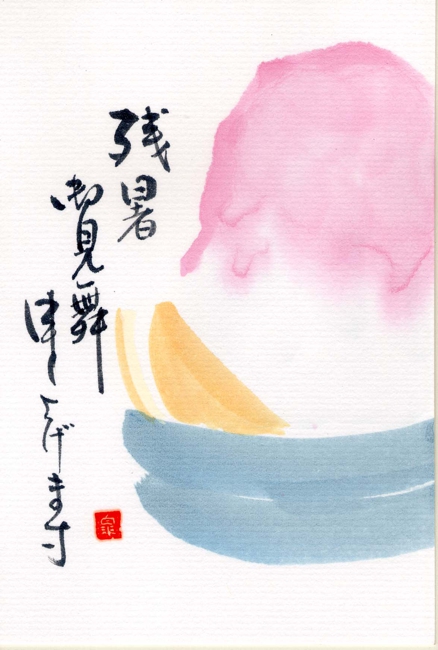 残暑
御見舞
申し上げます